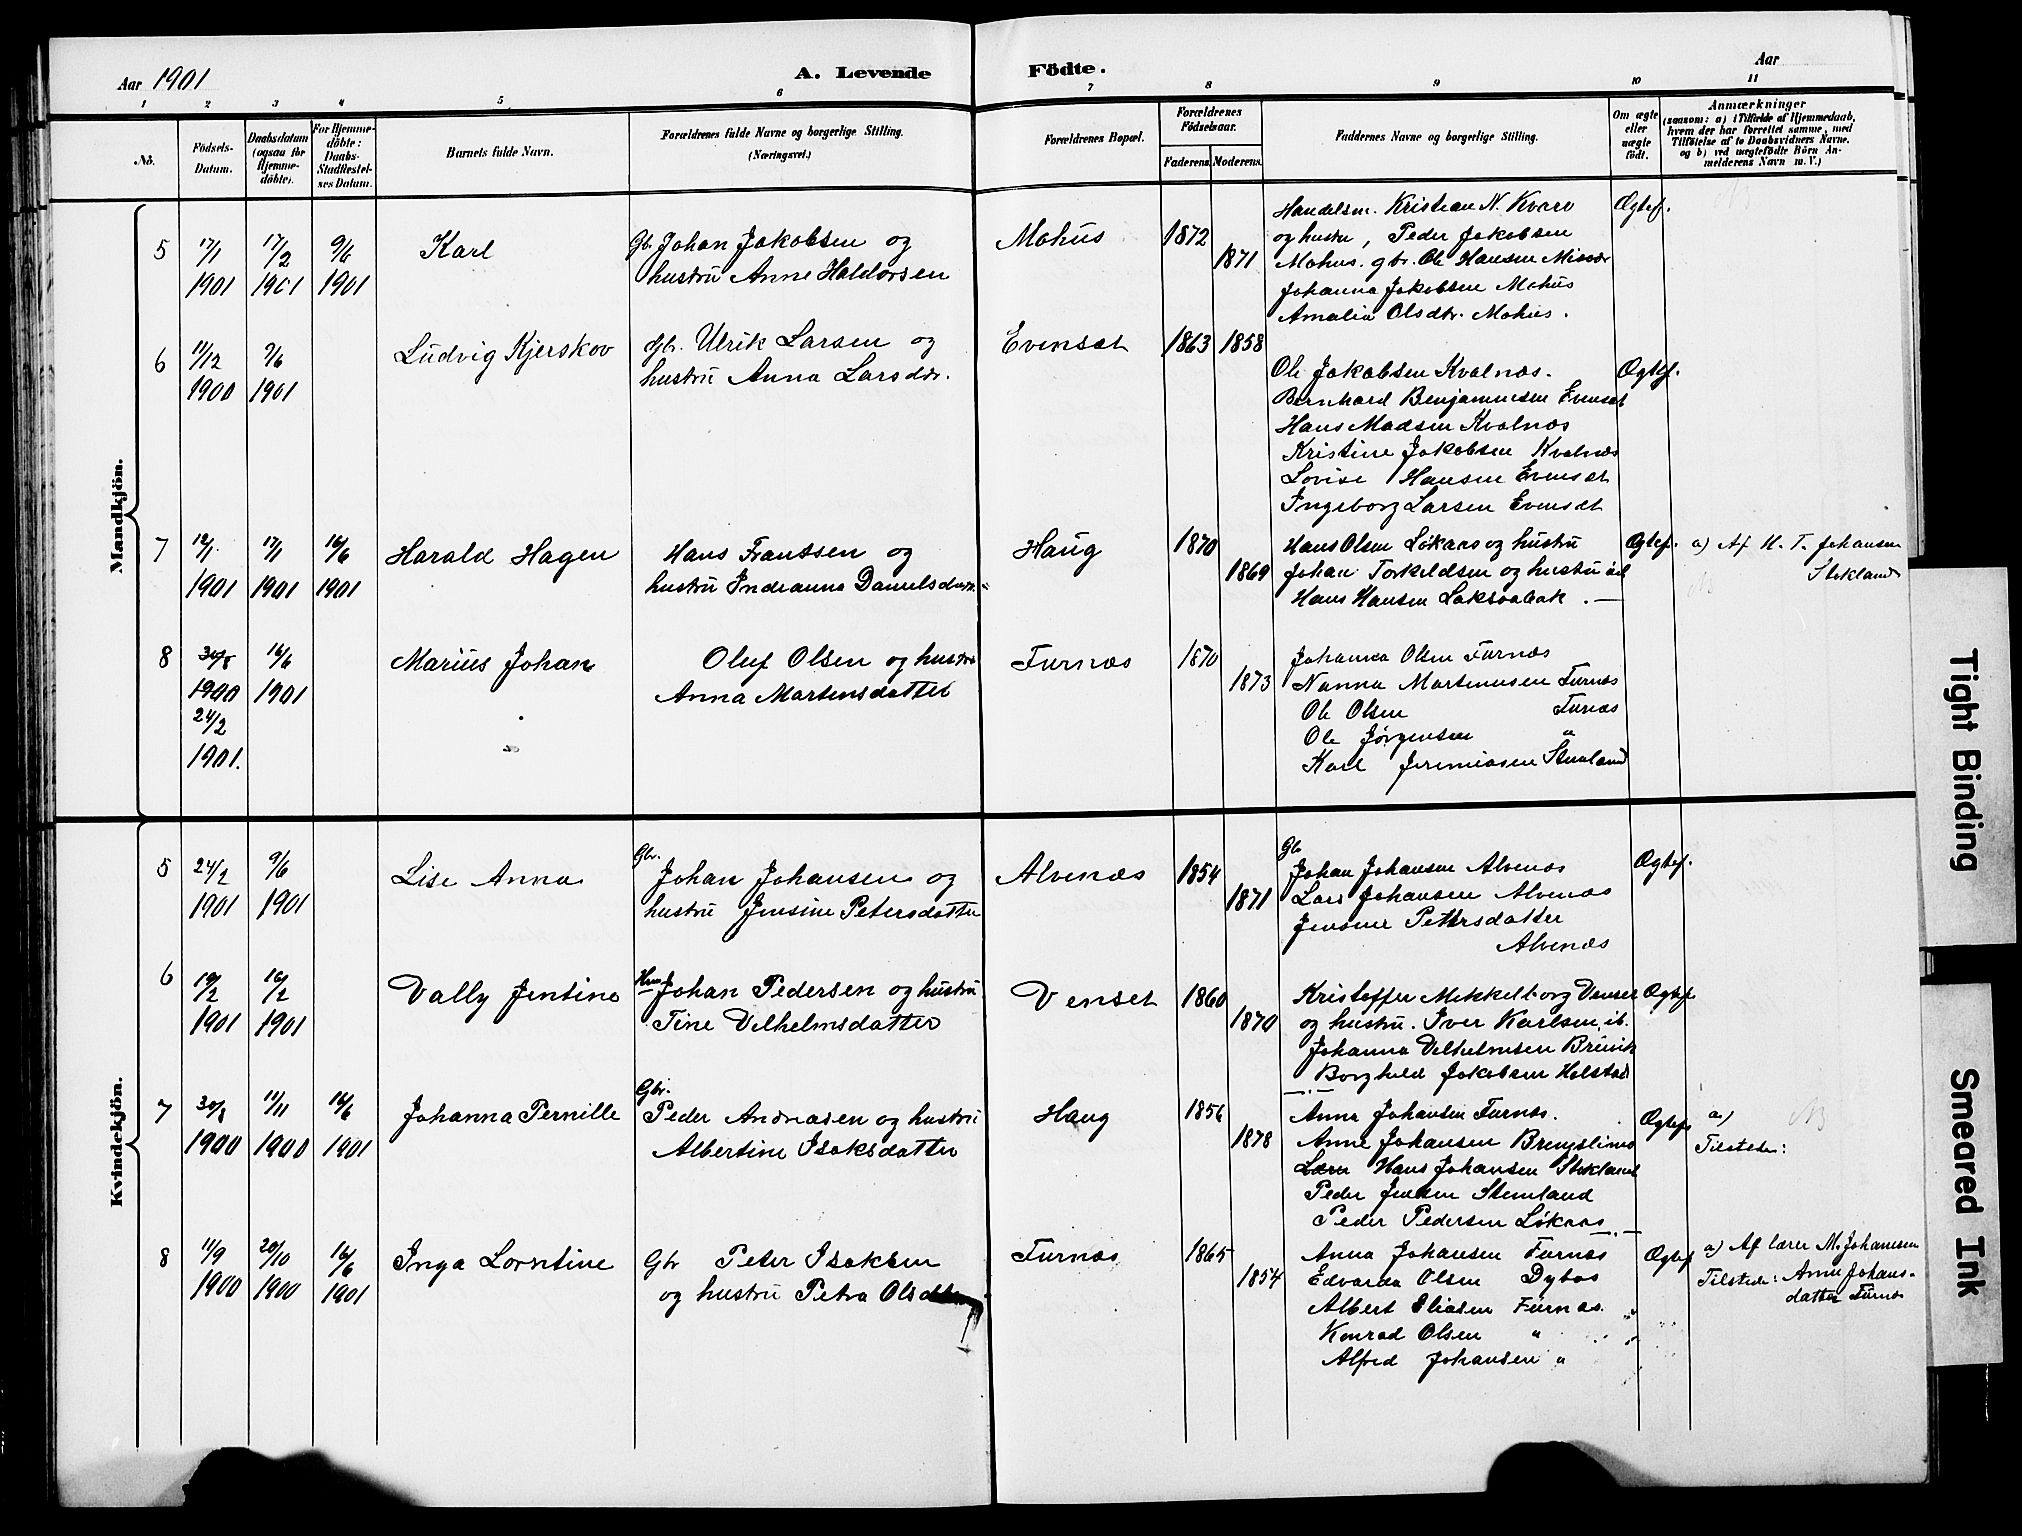 Aar 1901
A. Levende
Födte.
Aar
1 2 3 4 5 6 7 8 9 10 11
No.
Födsels-
Datum.
Daabsdatum
(ogsaa for
Hjemme-
döbte).
For Hjemme-
döbte:
Daabs-
Stadfæstel-
ses Datum.
Barnets fulde Navn.
Forældrenes fulde Navne og borgerlige Stilling.
(Næringsvei.)
Forældrenes Bopæl.
Forældrenes
Födselsaar.
Faderens.
Moderens.
Faddernes Navne og borgerlige Stilling.
Om ægte
eller
uægte
födt.
Anmærkninger
(saasom: a) i Tilfælde af Hjemmedaab,
hvem der har forrettet samme, med
Tilföielse af to Daabsvidners Navne,
og b) ved uægtefödte Börn An-
melderens Navn m. V.)
Mandkjön.
5
17/1
1901
17/2
1901
9/6
1901
Karl
Gb. Johan Jakobsen og
hustru Anne Haldorsen
Mohus
1872
1871
Handelsm. Kristian N. Kvarv
og hustru, Peder Jakobsen
Mohus. gbr. Ole Hansen Misvær
Johanna Jakobsen Mohus
Amalia Olsdtr. Mohus.
Ægtef.
6
11/12
1900
9/6
1901
Ludvig Kjerskov
Gbr. Ulrik Larsen og
hustru Anna Larsdtr.
Evensæt
1863
1858
Ole Jakobsen Kvalnæs.
Bernhard Benjaminsen Evensæt
Hans Madsen Kvalnæs
Kristine Jakobsen Kvalnæs
Lovise Hansen Evensæt
Ingeborg Larsen Evensæt
Ægtef.
7
12/1
1901
17/1
1901
16/6
1901
Harald Hagen
Hans Frantsen og
hustru Indianna Danielsdatter
Haug
1870
1869
Hans Olsen Løkaas og hustru
Johan Torkildsen og hustru
Hans Hansen
Ægtef.
a) Af H. T. Johansen
Stokland
8
30/8
1900
24/2
1901.
16/6
1901
Marius Johan
Oluf Olsen og hustru
Anna Martensdatter
Furnæs
1870
1873
Johanna Olsen Furnæs
Nanna Martinusen Furnæs
Ole Olsen Furnæs
Ole Jørgensen "
Karl Jeremiasen
Kvindekjön.
5
24/2
1901
9/6
1901
Lise Anna
Gbr.
Johan Johansen og
hustru Jensine Petersdatter
Alvenæs
1854
1871
Gb
Johan Johansen Alvenæs
Lars Johansen Alvenæs
Jensine Pettersdatter
Alvenæs
Ægtef.
6
10/2
1901
16/2
1901
Vally Jentine
Hm Johan Pedersen og hustru
Tine Vilhelmsdatter
Venset
1860
1870
Kristoffer Mikkelborg Venset
og hustru. Iver Karlsen ib.
Johanna Vilhelmsen Breivik
Borghild Jakobsen Holstad
Ægtef
7
30/8
1900
11/11
1900
16/6
1901
Johanna Pernille
Gbr.
Peder Andreasen og hustru
Albertine Isaksdatter
Haug
1856
1878
Anna Johansen Furnæs.
Anne Johansen
Lærer Hans Johansen Stokland
Peder Jensen Stemland
Peder Pedersen Løkaas
Ægtef
a)
Tilstede:
8
11/9
1900
20/10
1900
16/6
1901
Inga Lorntine
Gbr Peter Isaksen
og hustru Petra Olsdtr
Furnæs
1865
1854
Anna Johansen Furnæs
Edvarda Olsen Dybas
Albert Eliasen Furnæs.
Konrad Olsen "
Alfred Johansen "
Ægtef
a) Af lærer M. Johannsen
Tilstede: Anne Johans-
datter Furnæs
Tight Binding
Smeared Ink